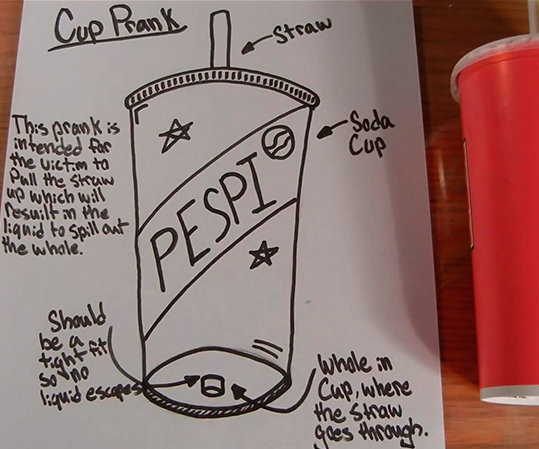 Cup Prank
Straw
Soda
Cup
This prank is
intended for
the victim to
Pull the straw
up which will
resuilt in the
liquid to spill out
the whole.
PESPI
Should
be a
tight fit
so no
liquid escapes
Whole in
Cup, where
the straw
goes through.